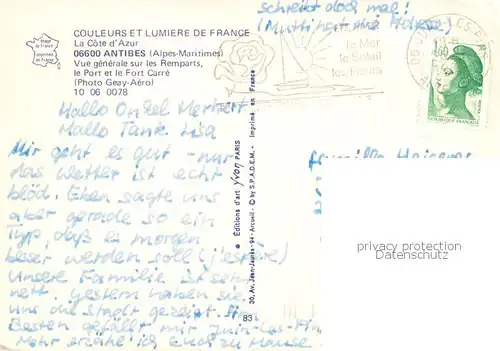 COULEURS ET LUMIERE DE FRANCE
La Côte d'Azur
06600 ANTIBES (Alpes-Maritimes)
Vue générale sur les Remparts,
le Port et le Fort Carré
(Photo Geay-Aéro)
10 06 0078
Image de France
imprimée en France
schreibt doch mal!
(Mutti hat die Adresse)
la Mer
le Soleil
les Fleurs
REPUBLIQUE FRANÇAISE
Hallo Onkel Herbert
Hallo Tante Lisa
Mir geht es gut - nur
das Wetter ist echt
blöd. Eben sagte uns
aber gerade so ein
Typ, daß es morgen
besser werden soll (j'espère)
Unsere Familie ist sehr
nett. Gestern haben sie
uns die Stadt gezeigt. Am
Besten gefällt mir Juan-Les-Pins
Mehr erzähle ich Euch zu Hause
Editions d'art Yvon PARIS
30, Av. Jean-Jaurès - 94 - Arcueil - © by S.P.A.D.E.M. - imprimé en France
83
Familie
privozdirect
protected images